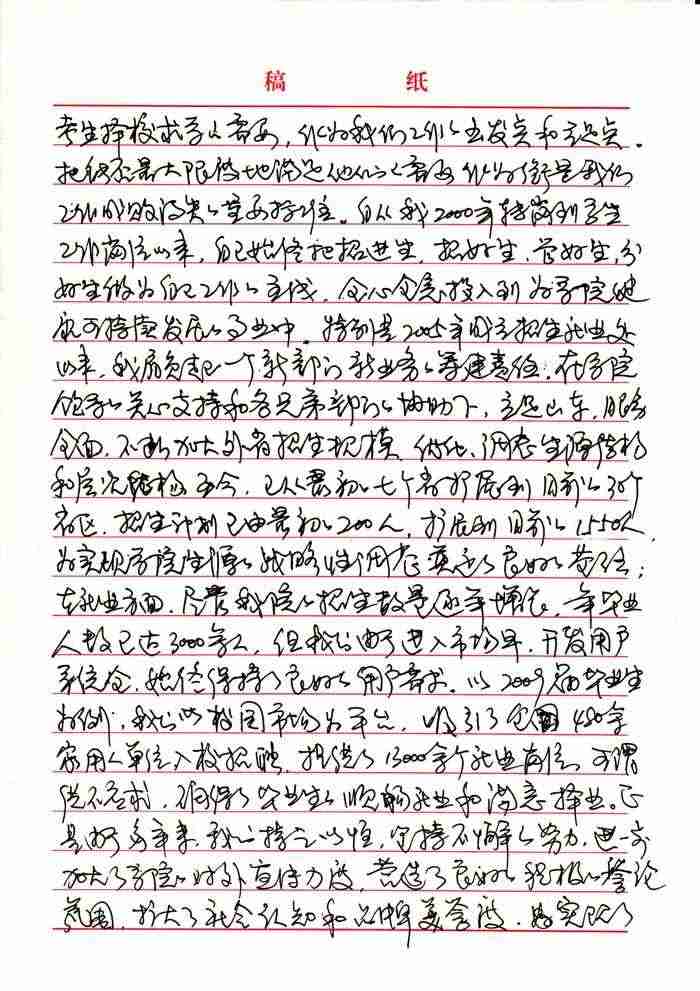 稿 纸
考生择校求学的需要，作为我们工作的出发点和立足点。
把能否最大限度地满足他们的需要作为衡量我们
工作成败得失的重要标准。自从我2000年转岗到学生
工作岗位以来，自己始终把招进生，招好生，管好生，分
好生做为自己工作的主线，全心全意投入到为学院健
康可持续发展的事业中。特别是2005年成立招生就业处
以来，我肩负起一个新部门新业务的筹建责任。在学院
领导的关心支持和各兄弟部门的协助下，立足山东，服务
全面，不断加大外省招生规模、优化、调整生源结构
和层次结构至今，已从最初的七个省扩展到目前的30个
省区，招生计划已由最初的200人，扩展到目前的1550人，
为实现学院生源的战略性调整奠定了良好的基础；
在就业方面，尽管我院的招生数量逐年增长，年毕业
人数已达3000多人，但我们由于进入市场早，开发用户
系统全，始终保持了良好的用户需求。以2009届毕业生
为例，我们以校园市场为平台，吸引了全国480余
家用人单位入校招聘，提供了13000余个就业岗位，可谓
供不应求，确保了毕业生的顺畅就业和满意择业。正
是由于多年来，我们持之以恒，坚持不懈的努力，进一步
加大了学院的对外宣传力度，营造了良好的积极的舆论
氛围，扩大了社会认知和品牌美誉度，为实现了